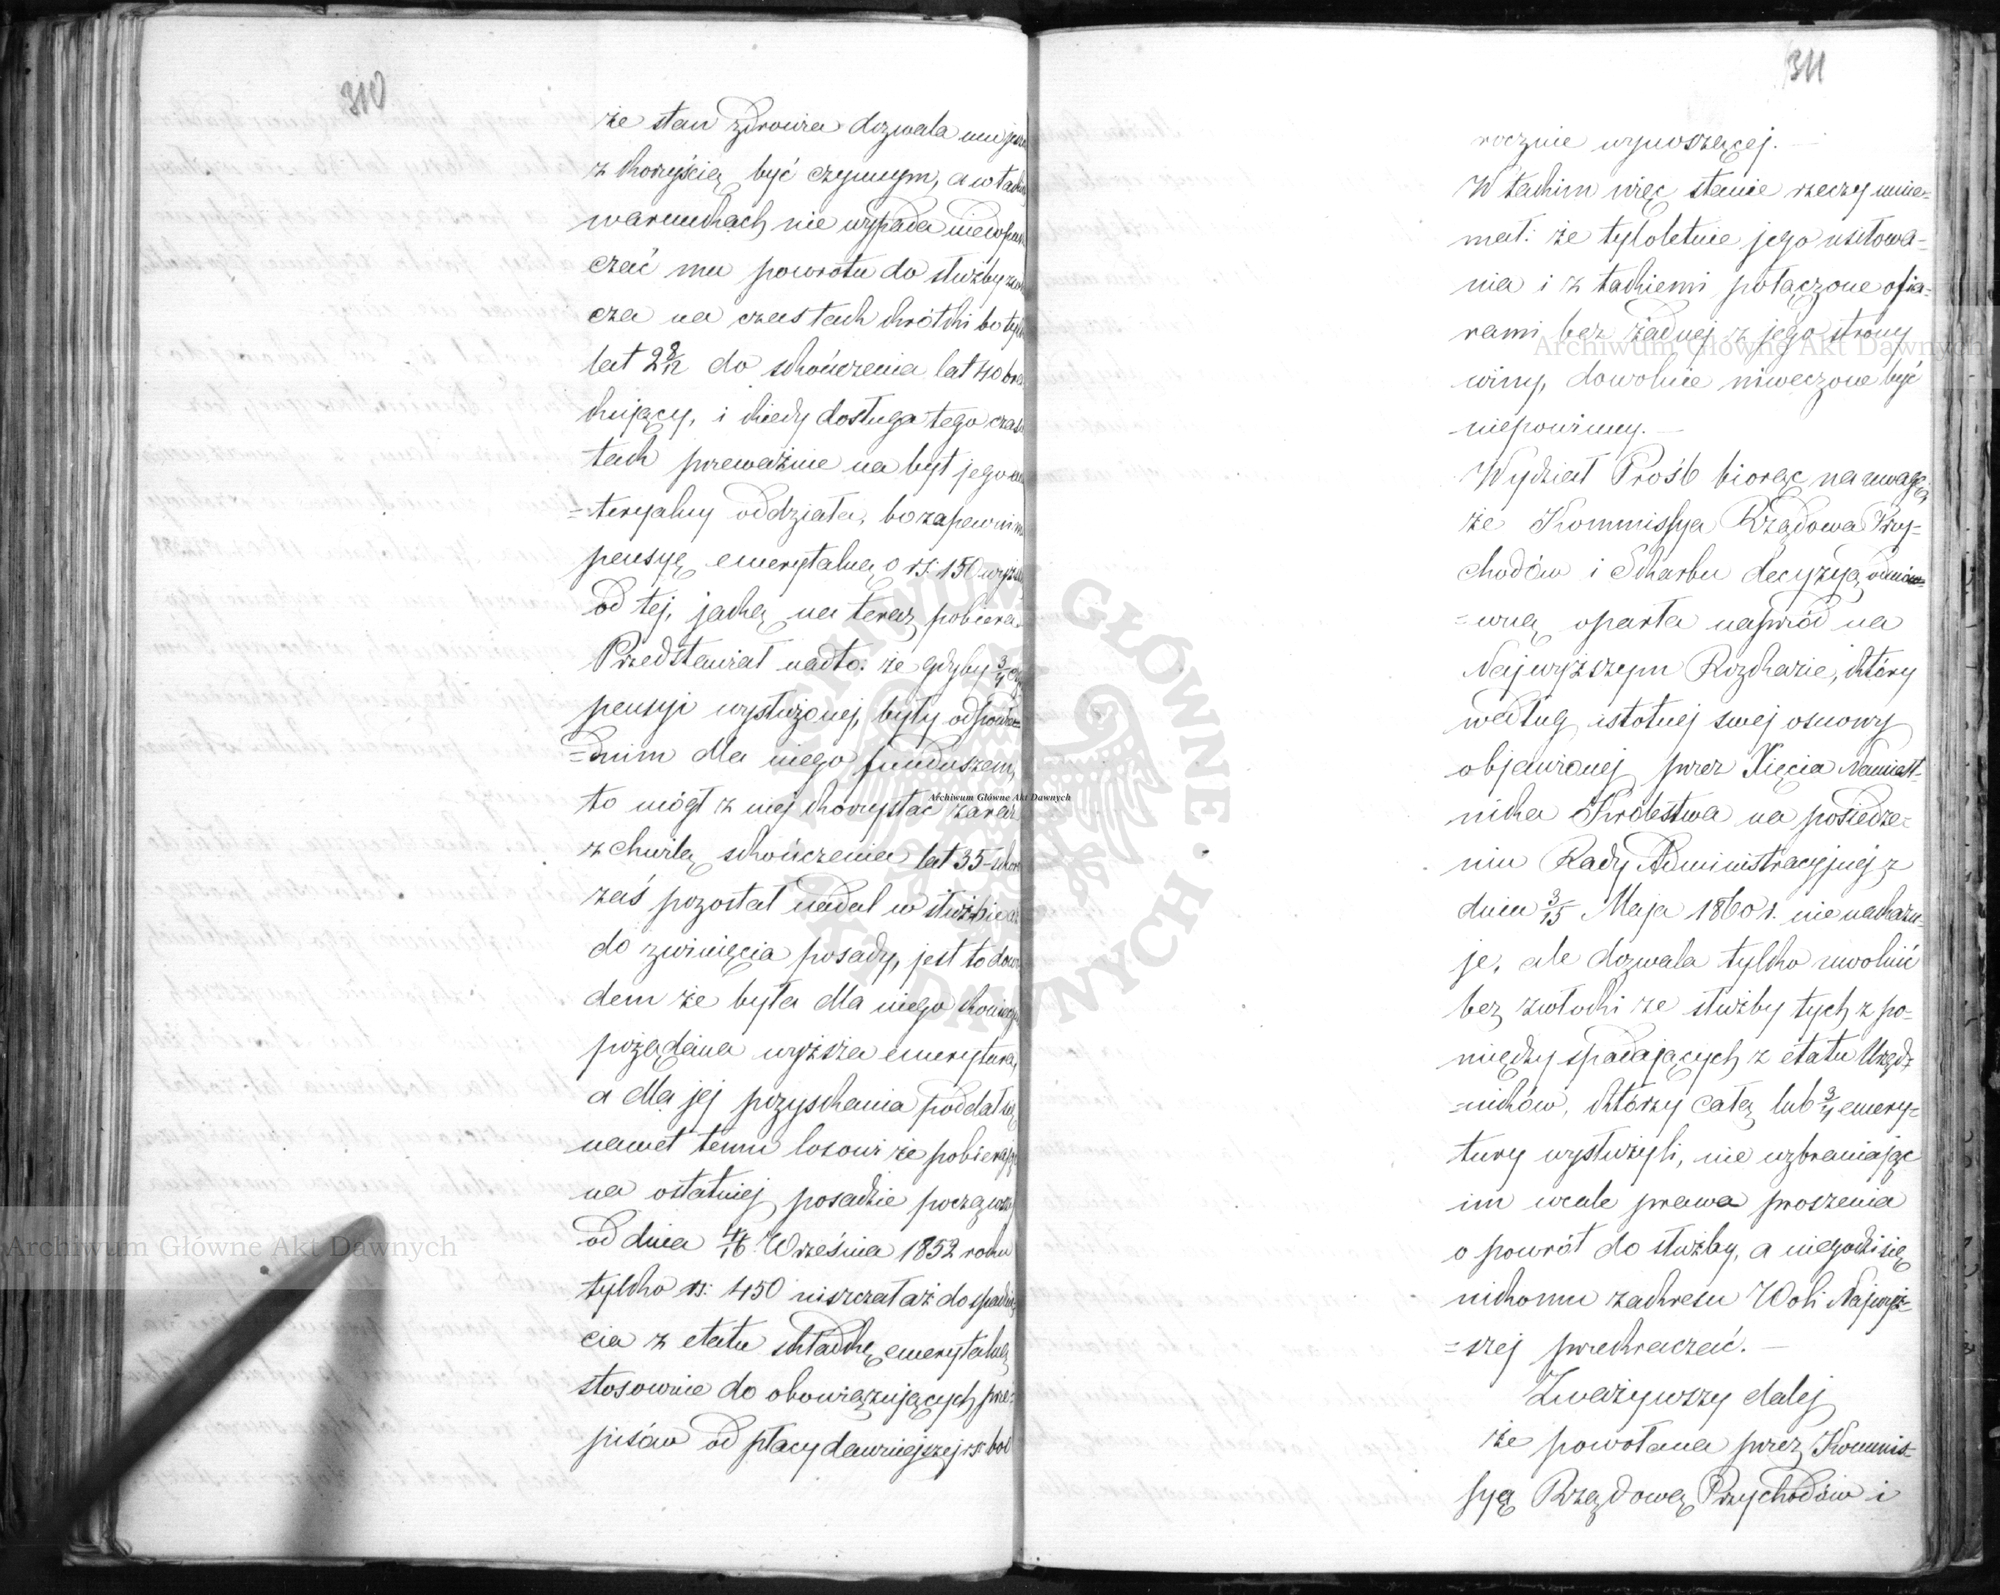 310
że stan zdrowia dozwala mu jeszcze
z korzyścią być czynnym, a w takich
warunkach nie wypada niedopusz
czać mu powrotu do służby zwła
cza na czas tak krótki bo tylko
lat 2 8/12 do skończenia lat 40 bra
kujący, i kiedy dosługa tego czasu
tak przeważnie na byt jego ma
=teryalny oddziała, bo zapewni mu
pensyę emerytalną o rs: 150 wyższą
od tej, jaką na teraz pobiera.
Przedstawiał nadto: że gdyby 3/4 części
pensyi wysłużonej, były odpowie=
=dnim dla niego funduszem,
to mógł z niej korzystać zaraz
z chwilą skończenia lat 35 – skoro
zaś pozostał nadal w służbie aż
do zwinięcia posady, jest to dowo
dem że była dla niego koniecznie
pożądana wyższa emerytura,
a dla jej pozyskania poddał się
nawet temu losowi że pobierając
na ostatniej posadzie począwszy
od dnia 4/16 Września 1852 roku
tylko rs: 450 uiszczał aż do spadnię
cia z etatu składkę emerytalną
stosownie do obowiązujących prze=
pisów od płacy dawniejszej rs: 600
311
rocznie wynoszącej. —
W takim więc stanie rzeczy mnie=
mał: że tyloletnie jego usiłowa=
nia i z takiemi połączone ofia=
rami bez żadnej z jego strony
winy, dowolnie niweczone być
niepowinny. —
Wydział Próśb biorąc na uwagę,
że Kommissya Rządowa Przy=
chodów i Skarbu decyzyą odmow=
=wną oparła naprzód na
Najwyższym Rozkazie, który
według istotnej swej osnowy
objawionej przez Xięcia Namiest=
nika Królestwa na posiedze=
niu Rady Administracyjnej z
dnia 3/15 Maja 1860 r. nie nakazu=
je, ale dozwala tylko uwolnić
bez zwłoki ze służby tych z po=
między spadających z etatu Urzęd=
=ników, którzy całą lub 3/4 emery=
tury wysłużyli, nie wzbraniając
im wcale prawa proszenia
o powrót do służby, a niegodzi się
nikomu zakresu Woli Najwyż=
=szej przekraczać. —
Zważywszy dalej
że powołana przez Kommis=
syą Rządową Przychodów i
Archiwum Główne Akt Dawnych
Archiwum Główne Akt Dawnych
Archiwum Główne Akt Dawnych
ARCHIWUM GŁÓWNE · AKT DAWNYCH ·